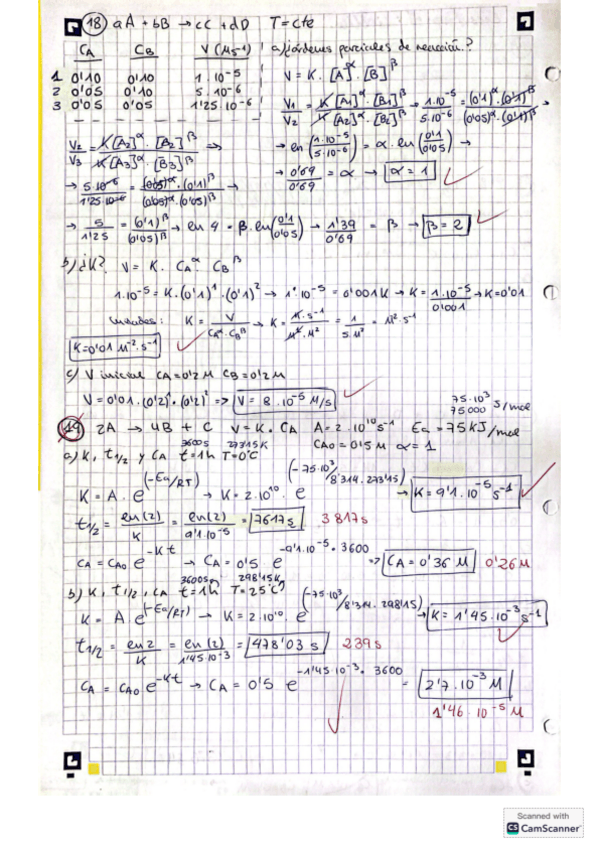 18) aA + bB → cC + dD   T = cte
CA   CB   V (Ms⁻¹)   a) ¿órdenes parciales de reacción?
1   0'10   0'10   1·10⁻⁵
2   0'05   0'10   5·10⁻⁶
3   0'05   0'05   1'25·10⁻⁶
V = K·[A]^α·[B]^β
V1/V2 = K[A1]^α·[B1]^β / K[A2]^α·[B2]^β → 1·10⁻⁵/5·10⁻⁶ = (0'1)^α·(0'1)^β / (0'05)^α·(0'1)^β →
→ ln(1·10⁻⁵/5·10⁻⁶) = α·ln(0'1/0'05) →
→ 0'69/0'69 = α → α = 1
V2/V3 = K[A2]^α·[B2]^β / K[A3]^α·[B3]^β ⇒
→ 5·10⁻⁶/1'25·10⁻⁶ = (0'05)^α·(0'1)^β / (0'05)^α·(0'05)^β →
→ 5/1'25 = (0'1)^β/(0'05)^β → ln 4 = β·ln(0'1/0'05) → 1'39/0'69 = β → β = 2
b) ¿K? V = K·CA^α·CB^β
1·10⁻⁵ = K·(0'1)¹·(0'1)² → 1·10⁻⁵ = 0'001K → K = 1·10⁻⁵/0'001 → K = 0'01
Unidades: K = V/CA^α·CB^β → K = M·s⁻¹/M·M² = 1/s·M² = M⁻²·s⁻¹
K = 0'01 M⁻²·s⁻¹
c) V inicial CA = 0'2 M CB = 0'2 M
V = 0'01·(0'2)¹·(0'2)² => V = 8·10⁻⁵ M/s
75·10³
75000 J/mol
19) 2A → 4B + C   V = K·CA   A = 2·10¹⁰ s⁻¹   Ea = 75 KJ/mol
3600s   273'15K   CA0 = 0'5 M   α = 1
a) K, t1/2 y CA t = 1h T = 0°C
K = A·e^(-Ea/RT) → K = 2·10¹⁰·e^(-75·10³/8'314·273'15) → K = 9'1·10⁻⁵ s⁻¹
t1/2 = ln(2)/K = ln(2)/9'1·10⁻⁵ = 7617 s   3817s
CA = CA0 e^-Kt → CA = 0'5 e^-9'1·10⁻⁵·3600 => CA = 0'36 M   0'26 M
3600s   298'15K
b) K, t1/2, CA t = 1h T = 25°C
K = A e^(-Ea/RT) → K = 2·10¹⁰·e^(-75·10³/8'314·298'15) → K = 1'45·10⁻³ s⁻¹
t1/2 = ln 2/K = ln(2)/1'45·10⁻³ = 478'03 s   239s
CA = CA0 e^-Kt → CA = 0'5 e^-1'45·10⁻³·3600 = 2'7·10⁻³ M
1'46·10⁻⁵ M
Scanned with
CS CamScanner